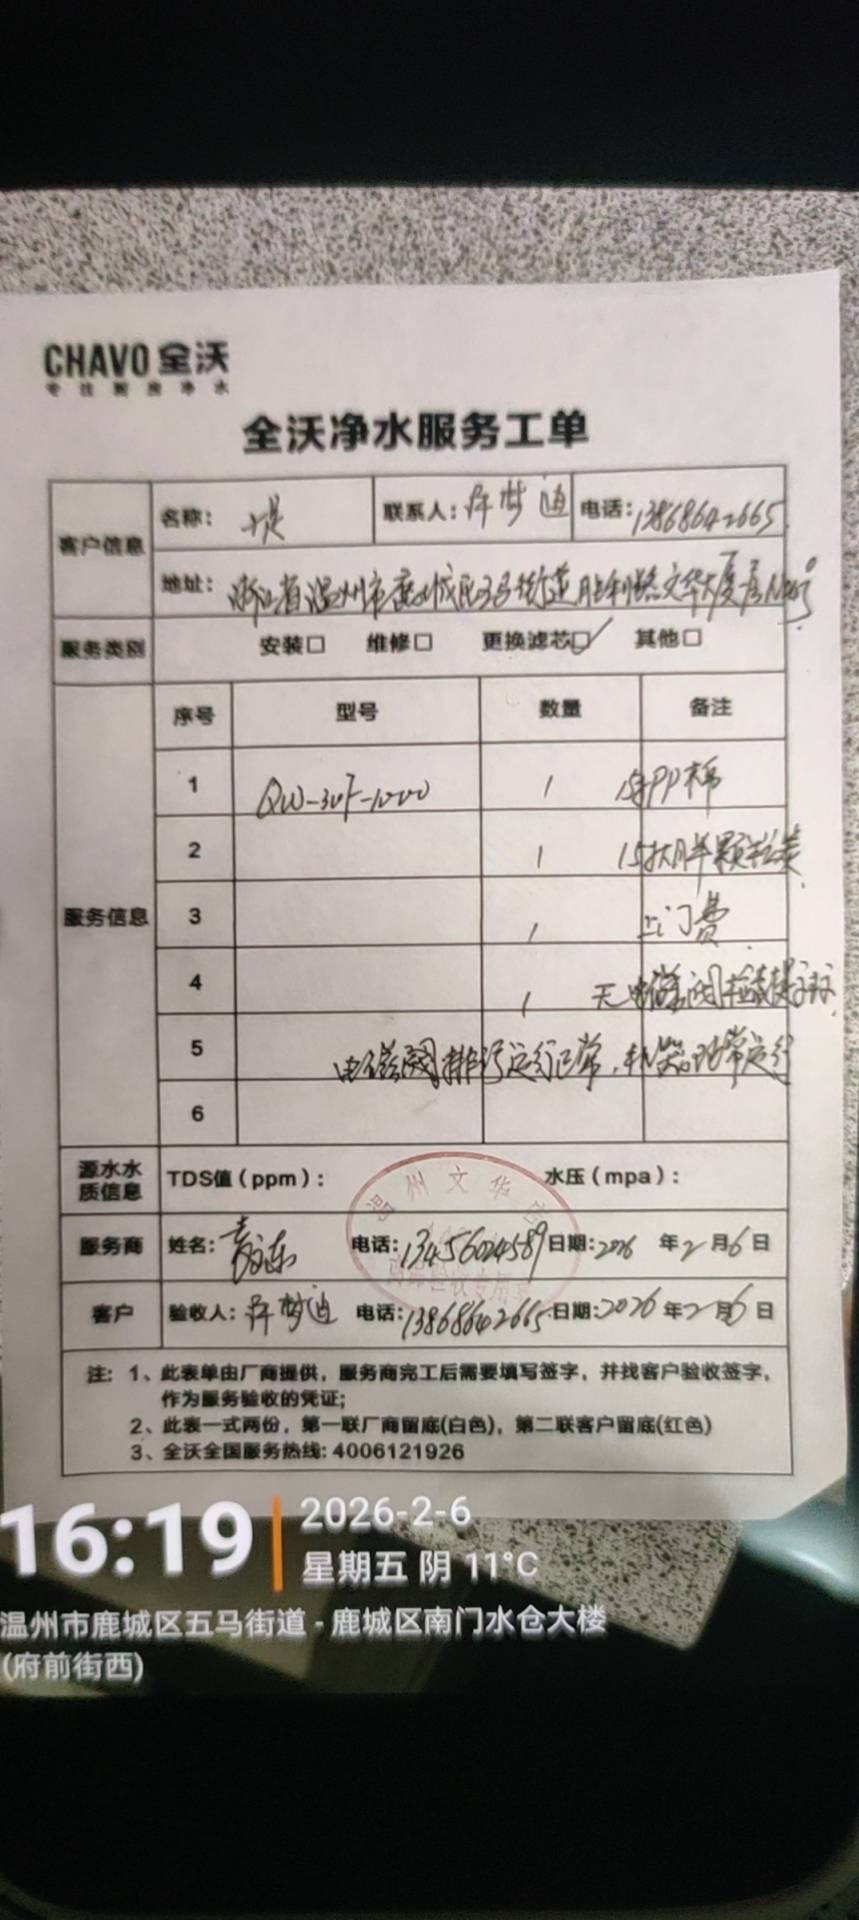 CHAVO 全沃
专注厨房净水
全沃净水服务工单
客户信息 名称： 联系人：许梦迪 电话：13868642665
地址：浙江省温州市鹿城区五马街道胜利路文华大厦
服务类别 安装□ 维修□ 更换滤芯□✓ 其他□
服务信息 序号 型号 数量 备注
1 QW-30F-1000 1 PP棉
2 1 15扒胖颗粒炭
3 1 上门费
4 1
5 电磁阀排污运行正常，机器正常运行
6
源水水质信息 TDS值（ppm）： 水压（mpa）：
温州文华店
验收专用章
服务商 姓名： 电话：13456024589 日期：2026 年 2 月 6 日
客户 验收人：许梦迪 电话：13868642665 日期：2026 年 2 月 6 日
注：1、此表单由厂商提供，服务商完工后需要填写签字，并找客户验收签字，
作为服务验收的凭证；
2、此表一式两份，第一联厂商留底(白色)，第二联客户留底(红色)
3、全沃全国服务热线：4006121926
16:19 2026-2-6
星期五 阴 11°C
温州市鹿城区五马街道 - 鹿城区南门水仓大楼
(府前街西)